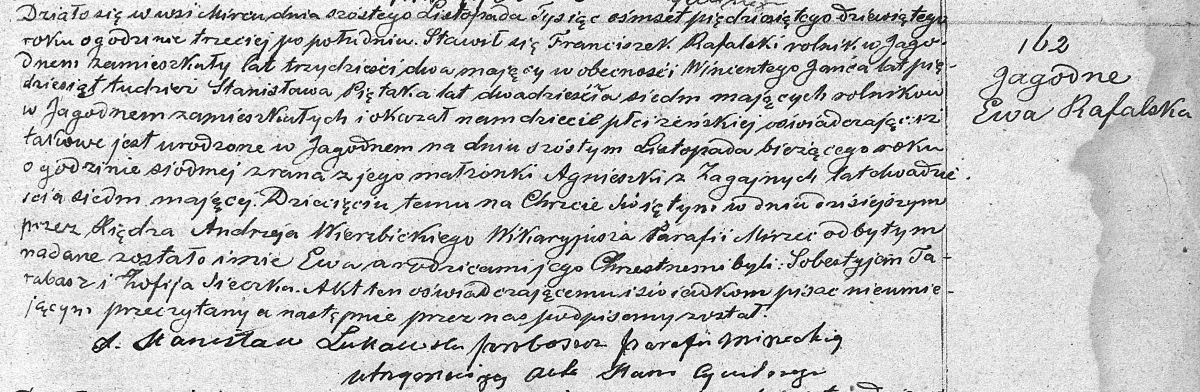 Działo się w wsi Mircu dnia szóstego Listopada Tysiąc ośmset pięćdziesiątego dziewiątego
roku o godzinie trzeciej po południu. Stawił się Franciszek Rafalski rolnik w Jago-
dnem zamieszkały lat trzydzieści dwa mający w obecności Wincentego Jańca lat pię-
dziesiąt tudzież Stanisława Piętaka lat dwadzieścia siedm mających rolników
w Jagodnem zamieszkałych i okazał nam dziecie płci żeńskiej oświadczając iż
takowe jest urodzone w Jagodnem na dniu szóstym Listopada bieżącego roku
o godzinie siódmej z rana z jego małżonki Agnieszki z Zagajnych lat dwadzie-
ścia siedm mający. Dziecięciu temu na Chrzcie Świętym w dniu dzisiejszym
przez Księdza Andrzeja Wierzbickiego Wikaryjusza Parafii Mirzec odbytym
nadane zostało imie Ewa a rodzicami jego Chrzestnemi byli: Sobestyjan Ta-
rabasz i Zofija Sieczka. Akt ten oświadczającemu i świadkom pisać nieumie-
jącym przeczytany a następnie przez nas podpisany został.
X. Stanisław proboszcz parafii Mireckiej
utrzymujący akta Stanu Cywilnego
162
Jagodne
Ewa Rafalska